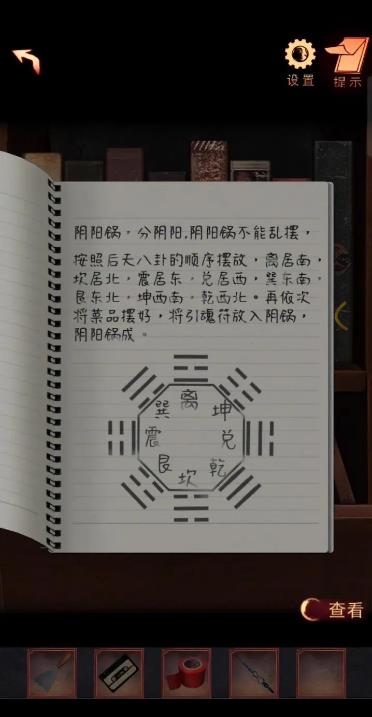 设置
提示
阴阳锅，分阴阳，阴阳锅不能乱摆，
按照后天八卦的顺序摆放，离居南，
坎居北，震居东，兑居西，巽东南，
艮东北，坤西南，乾西北。再依次
将菜品摆好，将引魂符放入阴锅，
阴阳锅成。
巽 离 坤
震 兑
艮 坎 乾
查看